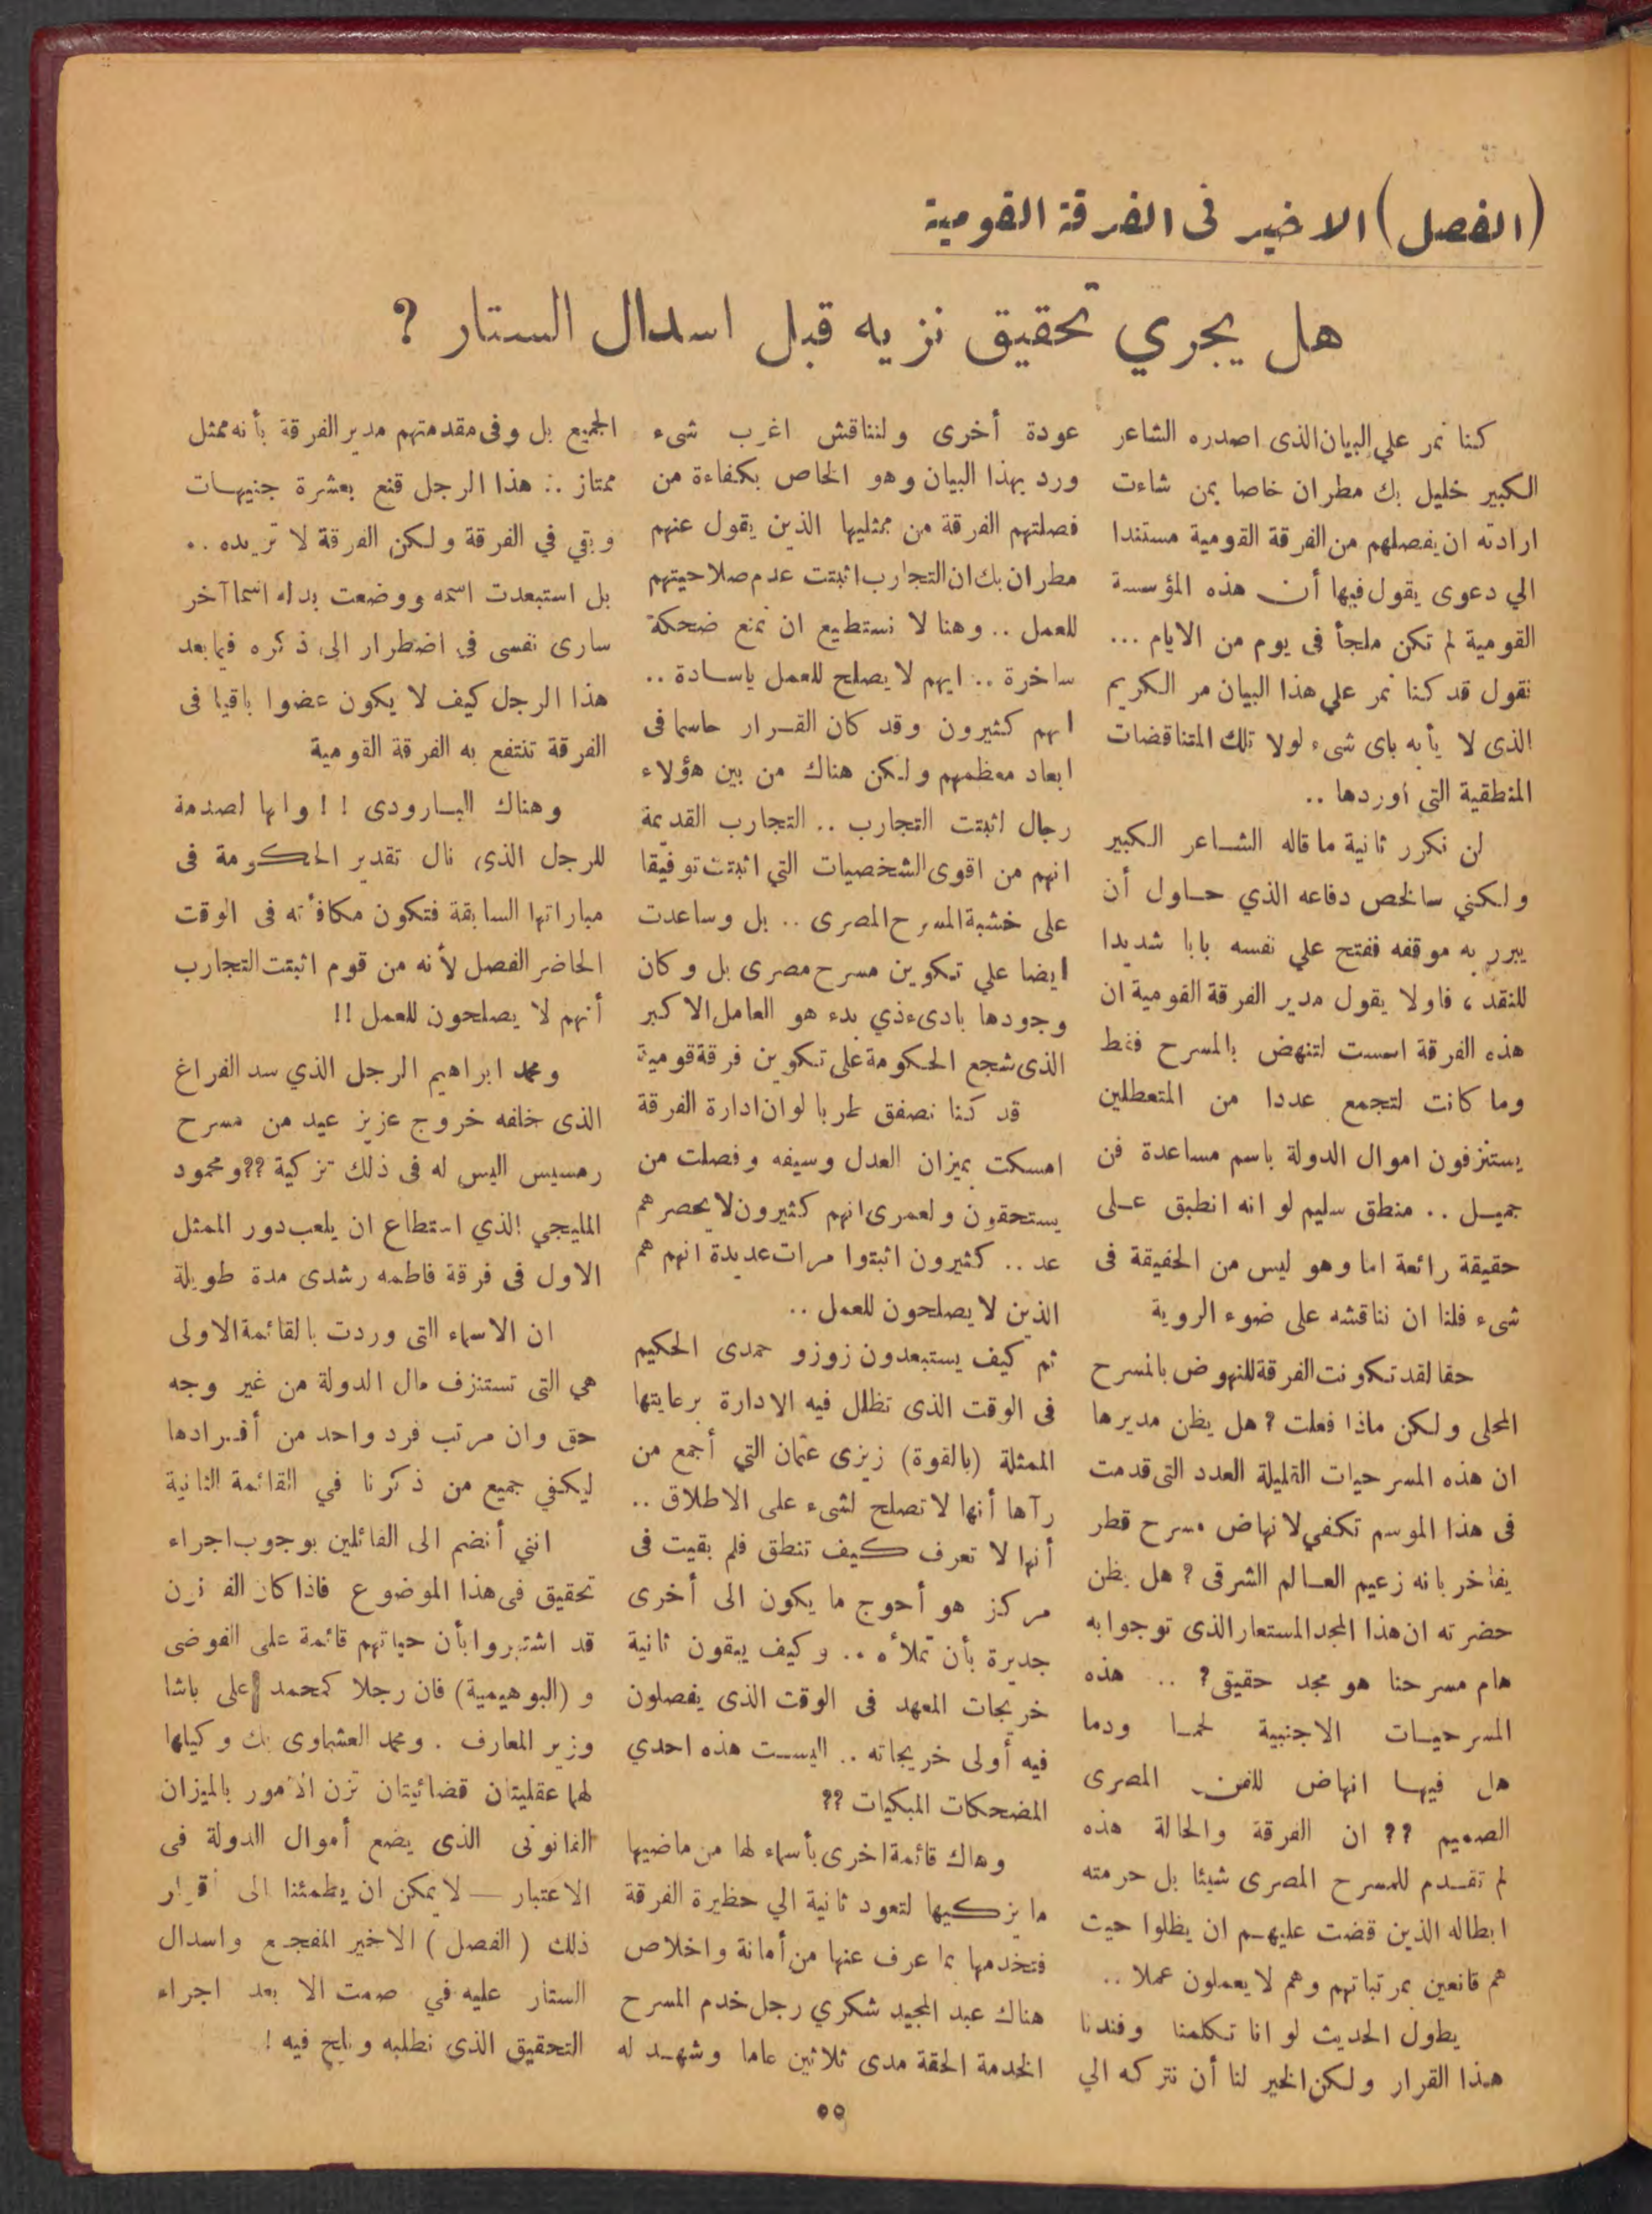 (الفصل) الاخير فى الفرقة القومية
هل يجري تحقيق نزيه قبل اسدال الستار ؟
كنا نمر علي البيان الذى اصدره الشاعر
الكبير خليل بك مطران خاصا بمن شاءت
ارادته ان يفصلهم من الفرقة القومية مستندا
الي دعوى يقول فيها أن هذه المؤسسة
القومية لم تكن ملجأ فى يوم من الايام ...
نقول قد كنا نمر علي هذا البيان مر الكريم
الذى لا يأبه باى شىء لولا تلك المتناقضات
المنطقية التي أوردها ..
لن نكرر ثانية ما قاله الشاعر الكبير
ولكني سالخص دفاعه الذي حاول أن
يبرر به موقفه ففتح علي نفسه بابا شديدا
للنقد ، فاولا يقول مدير الفرقة القومية ان
هذه الفرقة اسست لتنهض بالمسرح فقط
وما كانت لتجمع عددا من المتعطلين
يستنزفون اموال الدولة باسم مساعدة فن
جميل .. منطق سليم لو انه انطبق على
حقيقة رائعة اما وهو ليس من الحقيقة فى
شىء فلنا ان نناقشه على ضوء الروية
حقا لقد تكونت الفرقة للنهوض بالمسرح
المحلى ولكن ماذا فعلت ؟ هل يظن مديرها
ان هذه المسرحيات القليلة العدد التى قدمت
فى هذا الموسم تكفي لانهاض مسرح قطر
يفاخر بانه زعيم العالم الشرقى ؟ هل يظن
حضرته ان هذا المجد المستعار الذى توجوا به
هام مسرحنا هو مجد حقيقى ؟ .. هذه
المسرحيات الاجنبية لحما ودما
هل فيها انهاض للفن المصرى
الصميم ؟؟ ان الفرقة والحالة هذه
لم تقدم للمسرح المصرى شيئا بل حرمته
ابطاله الذين قضت عليهم ان يظلوا حيث
هم قانعين بمرتباتهم وهم لا يعملون عملا ..
يطول الحديث لو انا تكلمنا وفندنا
هذا القرار ولكن الخير لنا أن نتركه الي
عودة أخرى ولنناقش اغرب شىء
ورد بهذا البيان وهو الخاص بكفاءة من
فصلتهم الفرقة من ممثليها الذين يقول عنهم
مطران بك ان التجارب اثبتت عدم صلاحيتهم
للعمل .. وهنا لا نستطيع ان نمنع ضحكة
ساخرة .. ايهم لا يصلح للعمل ياسادة ..
انهم كثيرون وقد كان القرار حاسما فى
ابعاد معظمهم ولكن هناك من بين هؤلاء
رجال اثبتت التجارب .. التجارب القديمة
انهم من اقوى الشخصيات التي اثبتت توفيقا
على خشبة المسرح المصرى .. بل وساعدت
ايضا علي تكوين مسرح مصرى بل وكان
وجودها بادىء ذي بدء هو العامل الاكبر
الذى شجع الحكومة على تكوين فرقة قومية
قد كنا نصفق طربا لو ان ادارة الفرقة
امسكت بميزان العدل وسيفه وفصلت من
يستحقون ولعمرى انهم كثيرون لا يحصرهم
عد .. كثيرون اثبتوا مرات عديدة انهم هم
الذين لا يصلحون للعمل ..
ثم كيف يستبعدون زوزو حمدى الحكيم
فى الوقت الذى تظلل فيه الادارة برعايتها
الممثلة (بالقوة) زيزى عثمان التي أجمع من
رآها أنها لا تصلح لشىء على الاطلاق ..
أنها لا تعرف كيف تنطق فلم بقيت فى
مركز هو أحوج ما يكون الى أخرى
جديرة بأن تملأه .. وكيف يبقون ثانية
خريجات المعهد فى الوقت الذى يفصلون
فيه أولى خريجاته .. اليست هذه احدي
المضحكات المبكيات ؟؟
وهاك قائمة اخرى بأسماء لها من ماضيها
ما يزكيها لتعود ثانية الي حظيرة الفرقة
فتخدمها بما عرف عنها من أمانة واخلاص
هناك عبد المجيد شكري رجل خدم المسرح
الخدمة الحقة مدى ثلاثين عاما وشهد له
الجميع بل وفى مقدمتهم مدير الفرقة بأنه ممثل
ممتاز .: هذا الرجل قنع بعشرة جنيهات
وبقي في الفرقة ولكن الفرقة لا تريده ..
بل استبعدت اسمه ووضعت بدله اسما آخر
سارى نفسى فى اضطرار الى ذكره فيما بعد
هذا الرجل كيف لا يكون عضوا باقيا فى
الفرقة تنتفع به الفرقة القومية
وهناك البارودى ! ! وانها لصدمة
للرجل الذى نال تقدير الحكومة فى
مباراتها السابقة فتكون مكافأته فى الوقت
الحاضر الفصل لأنه من قوم اثبتت التجارب
أنهم لا يصلحون للعمل !!
ومحمد ابراهيم الرجل الذي سد الفراغ
الذى خلفه خروج عزيز عيد من مسرح
رمسيس اليس له فى ذلك تزكية ؟؟ ومحمود
المليجي الذي استطاع ان يلعب دور الممثل
الاول فى فرقة فاطمه رشدى مدة طويلة
ان الاسماء التى وردت بالقائمة الاولى
هي التى تستنزف مال الدولة من غير وجه
حق وان مرتب فرد واحد من أفرادها
ليكفي جميع من ذكرنا في القائمة الثانية
انني أنضم الى القائلين بوجوب اجراء
تحقيق فى هذا الموضوع فاذا كان
قد اشتهروا بأن حياتهم قائمة على الفوضى
و (البوهيمية) فان رجلا كمحمد على باشا
وزير المعارف . ومحمد العشماوى بك وكيلها
لهما عقليتان قضائيتان تزن الأمور بالميزان
القانونى الذى يضع أموال الدولة فى
الاعتبار — لا يمكن ان يطمئنا الى اقرار
ذلك (الفصل) الاخير المفجع واسدال
الستار عليه في صمت الا بعد اجراء
التحقيق الذى نطلبه ونلح فيه !
٥٥